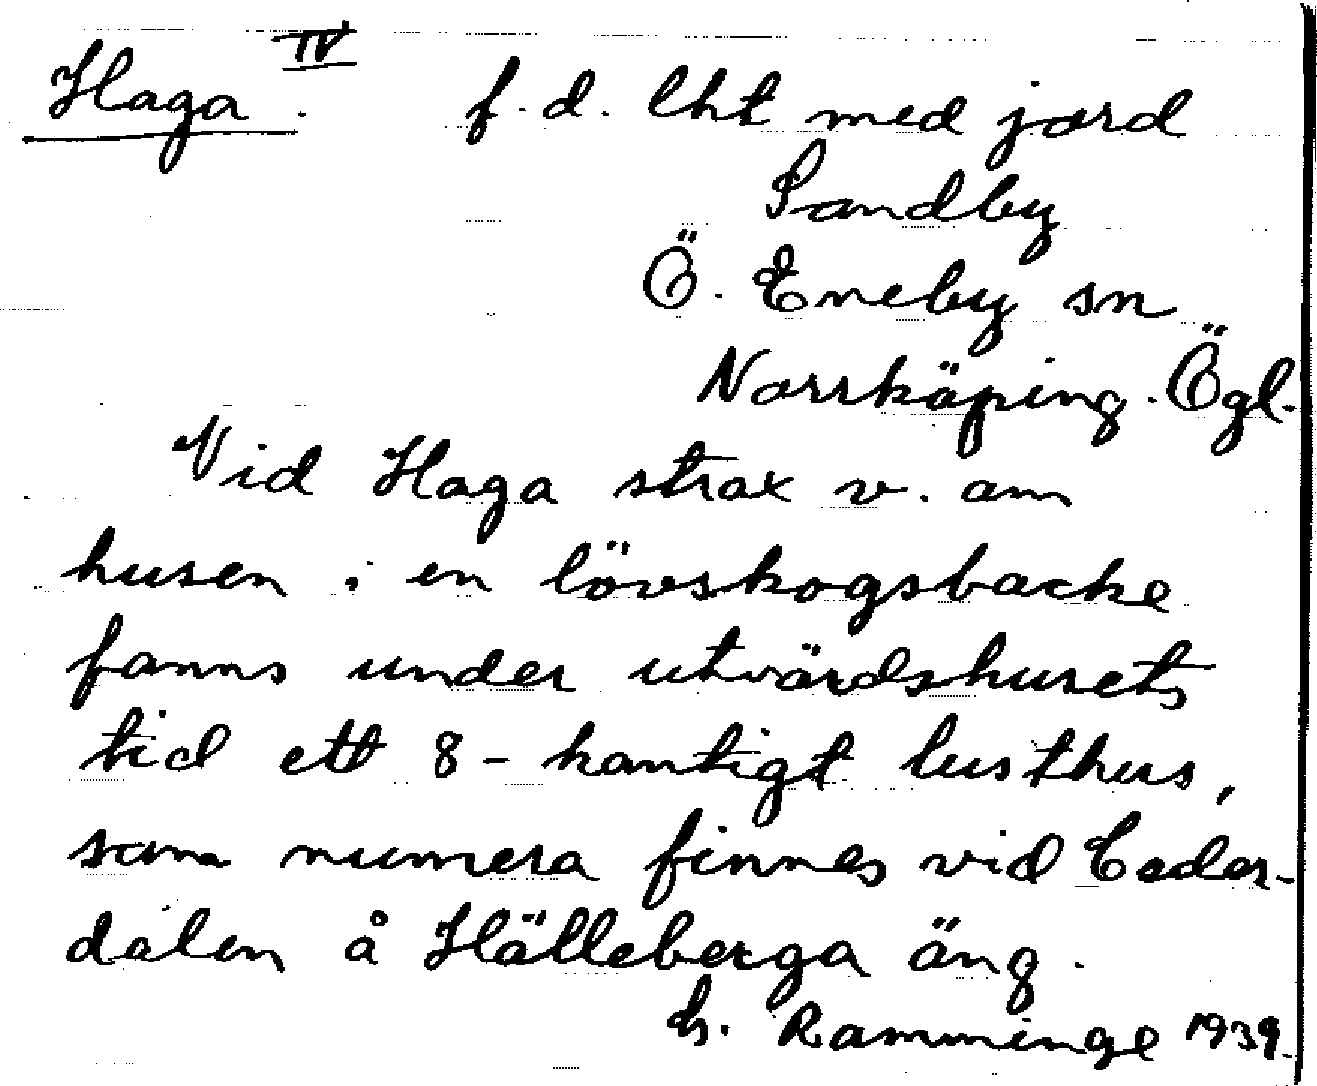 IV
Haga. f.d. lht med jord
Sandby
Ö. Eneby sn
Norrköping. Ögl.
Vid Haga strax v. om
husen i en lövskogsbacke
fanns under utvärdshusets
tid ett 8-kantigt lusthus,
som numera finnes vid Ceder-
dalen å Hälleberga äng.
h. Ramminge 1939.